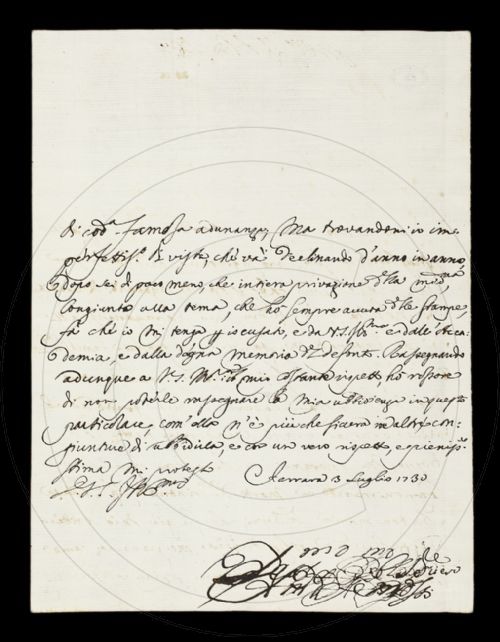 di cod.ª famosa adunanza, Ma trovandomi io im-
perfettiss.º di vista, che và declinando d'anno in anno
dopo sei ò poco meno, che intiera privazione d.lla med.ma
Congiunta alla tema, che hò sempre avuta d.lle stampe,
fà che io mi tenga p iscusato, e da V.S. Ill.ma e dall' Acca-
demia, e dalla degna memoria d.l defont. Rassegnando
adunque a V.S. Ill.ma il mio costante rispetto hò rossore
di non poterle rassegnare la mia ubbidienza in questo
particolare, com' ella n'è più che sicura in altre con-
giunture di ubbidirla, e con un vero rispetto, e pieniss.ª
stima mi protesto
Di V.S. Ill.ma
Ferrara 3 Luglio 1730